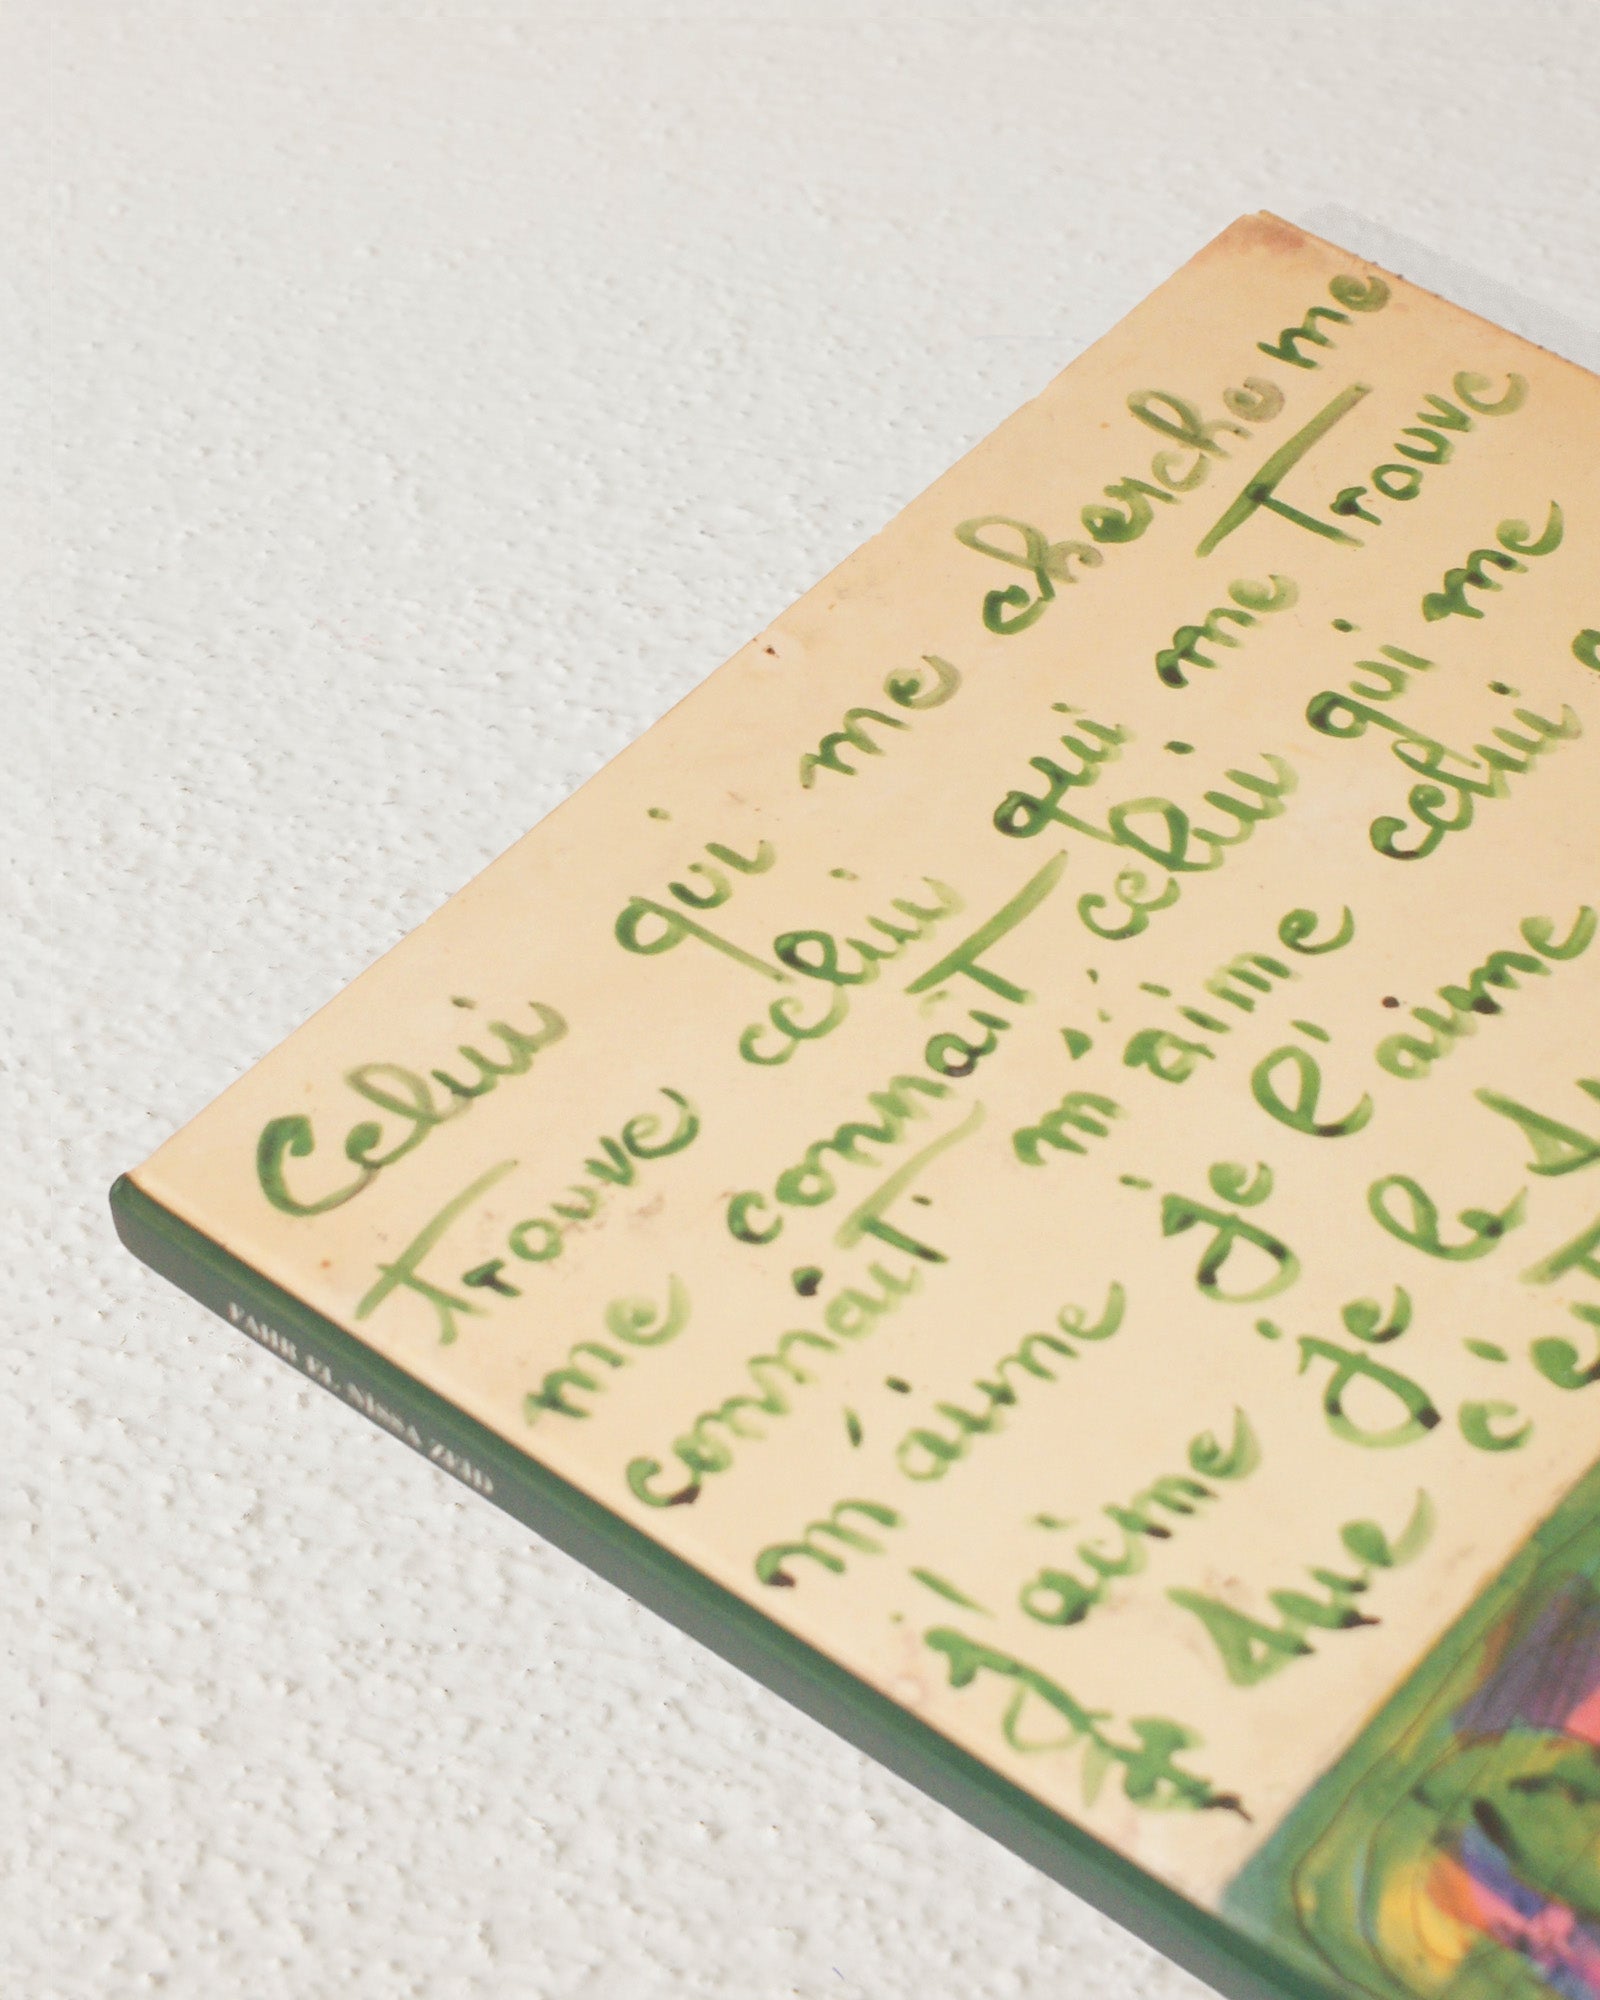 Celui qui me cherche me
Trouve celui qui me Trouve
me connaît celui qui me
connait m'aime celui
m'aime je l'aime
j'aime je le
tue
FAHR EL NISSA ZEID